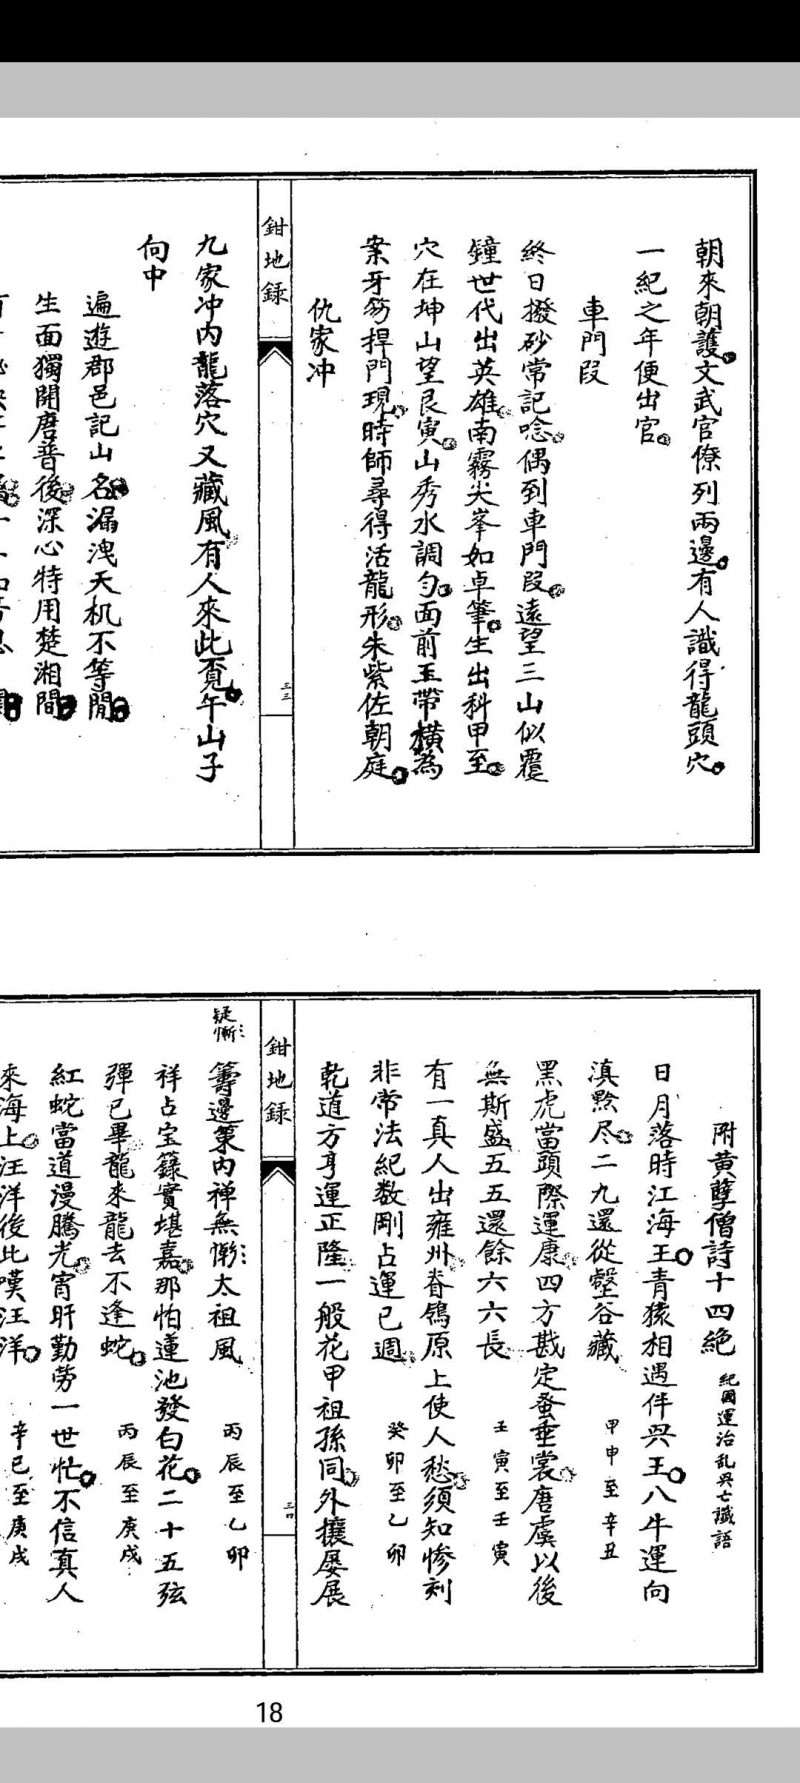 朝來朝護文武官僚列兩邊有人識得龍頭穴
一紀之年便出官
車門段
終日撥砂常記唸偶到車門段遠望三山似覆
鐘世代出英雄南霧尖峯如卓筆生出科甲至
穴在坤山望艮寅山秀水調勻面前玉帶橫為
案牙笏捍門現時師尋得活龍形朱紫佐朝庭
仇家冲
鉗地録
三三
九家冲内龍落穴又藏風有人來此覔午山子
向中
遍遊郡邑記山名漏洩天机不等閒
生面獨開唐晋後深心特用楚湘間
附黄孽僧詩十四絶 紀國運治乱興亡讖語
日月落時江海王青猿相遇伴與王八牛運向
滇黔尽二九還從壑谷藏 甲申至辛丑
黑虎當頭際運康四方戡定蚤垂裳唐虞以後
無斯盛五五還餘六六長 壬寅至壬寅
有一真人出雍州眷鴒原上使人愁須知慘刻
非常法紀数剛占運已週 癸卯至乙卯
乾道方亨運正隆一般花甲祖孫同外攘屡展
鉗地録
三四
疑慚
籌邊策内禅無慚太祖風 丙辰至乙卯
祥占宝籙實堪嘉那怕蓮池發白花二十五弦
彈已畢龍來龍去不逢蛇 丙辰至庚戌
紅蛇當道漫騰光宵旰勤勞一世忙不信真人
來海上汪洋後此嘆汪洋 辛巳至庚戌